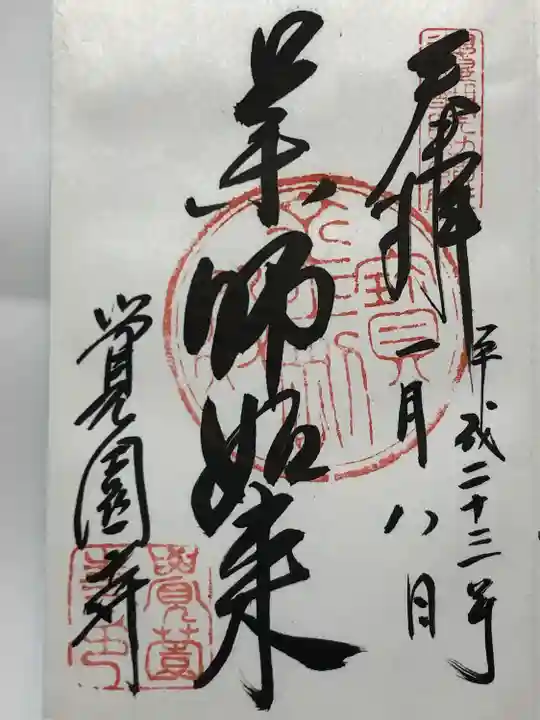 奉拝
平成二十三年
一月八日
薬師如来
覚園寺
寶
覺薗